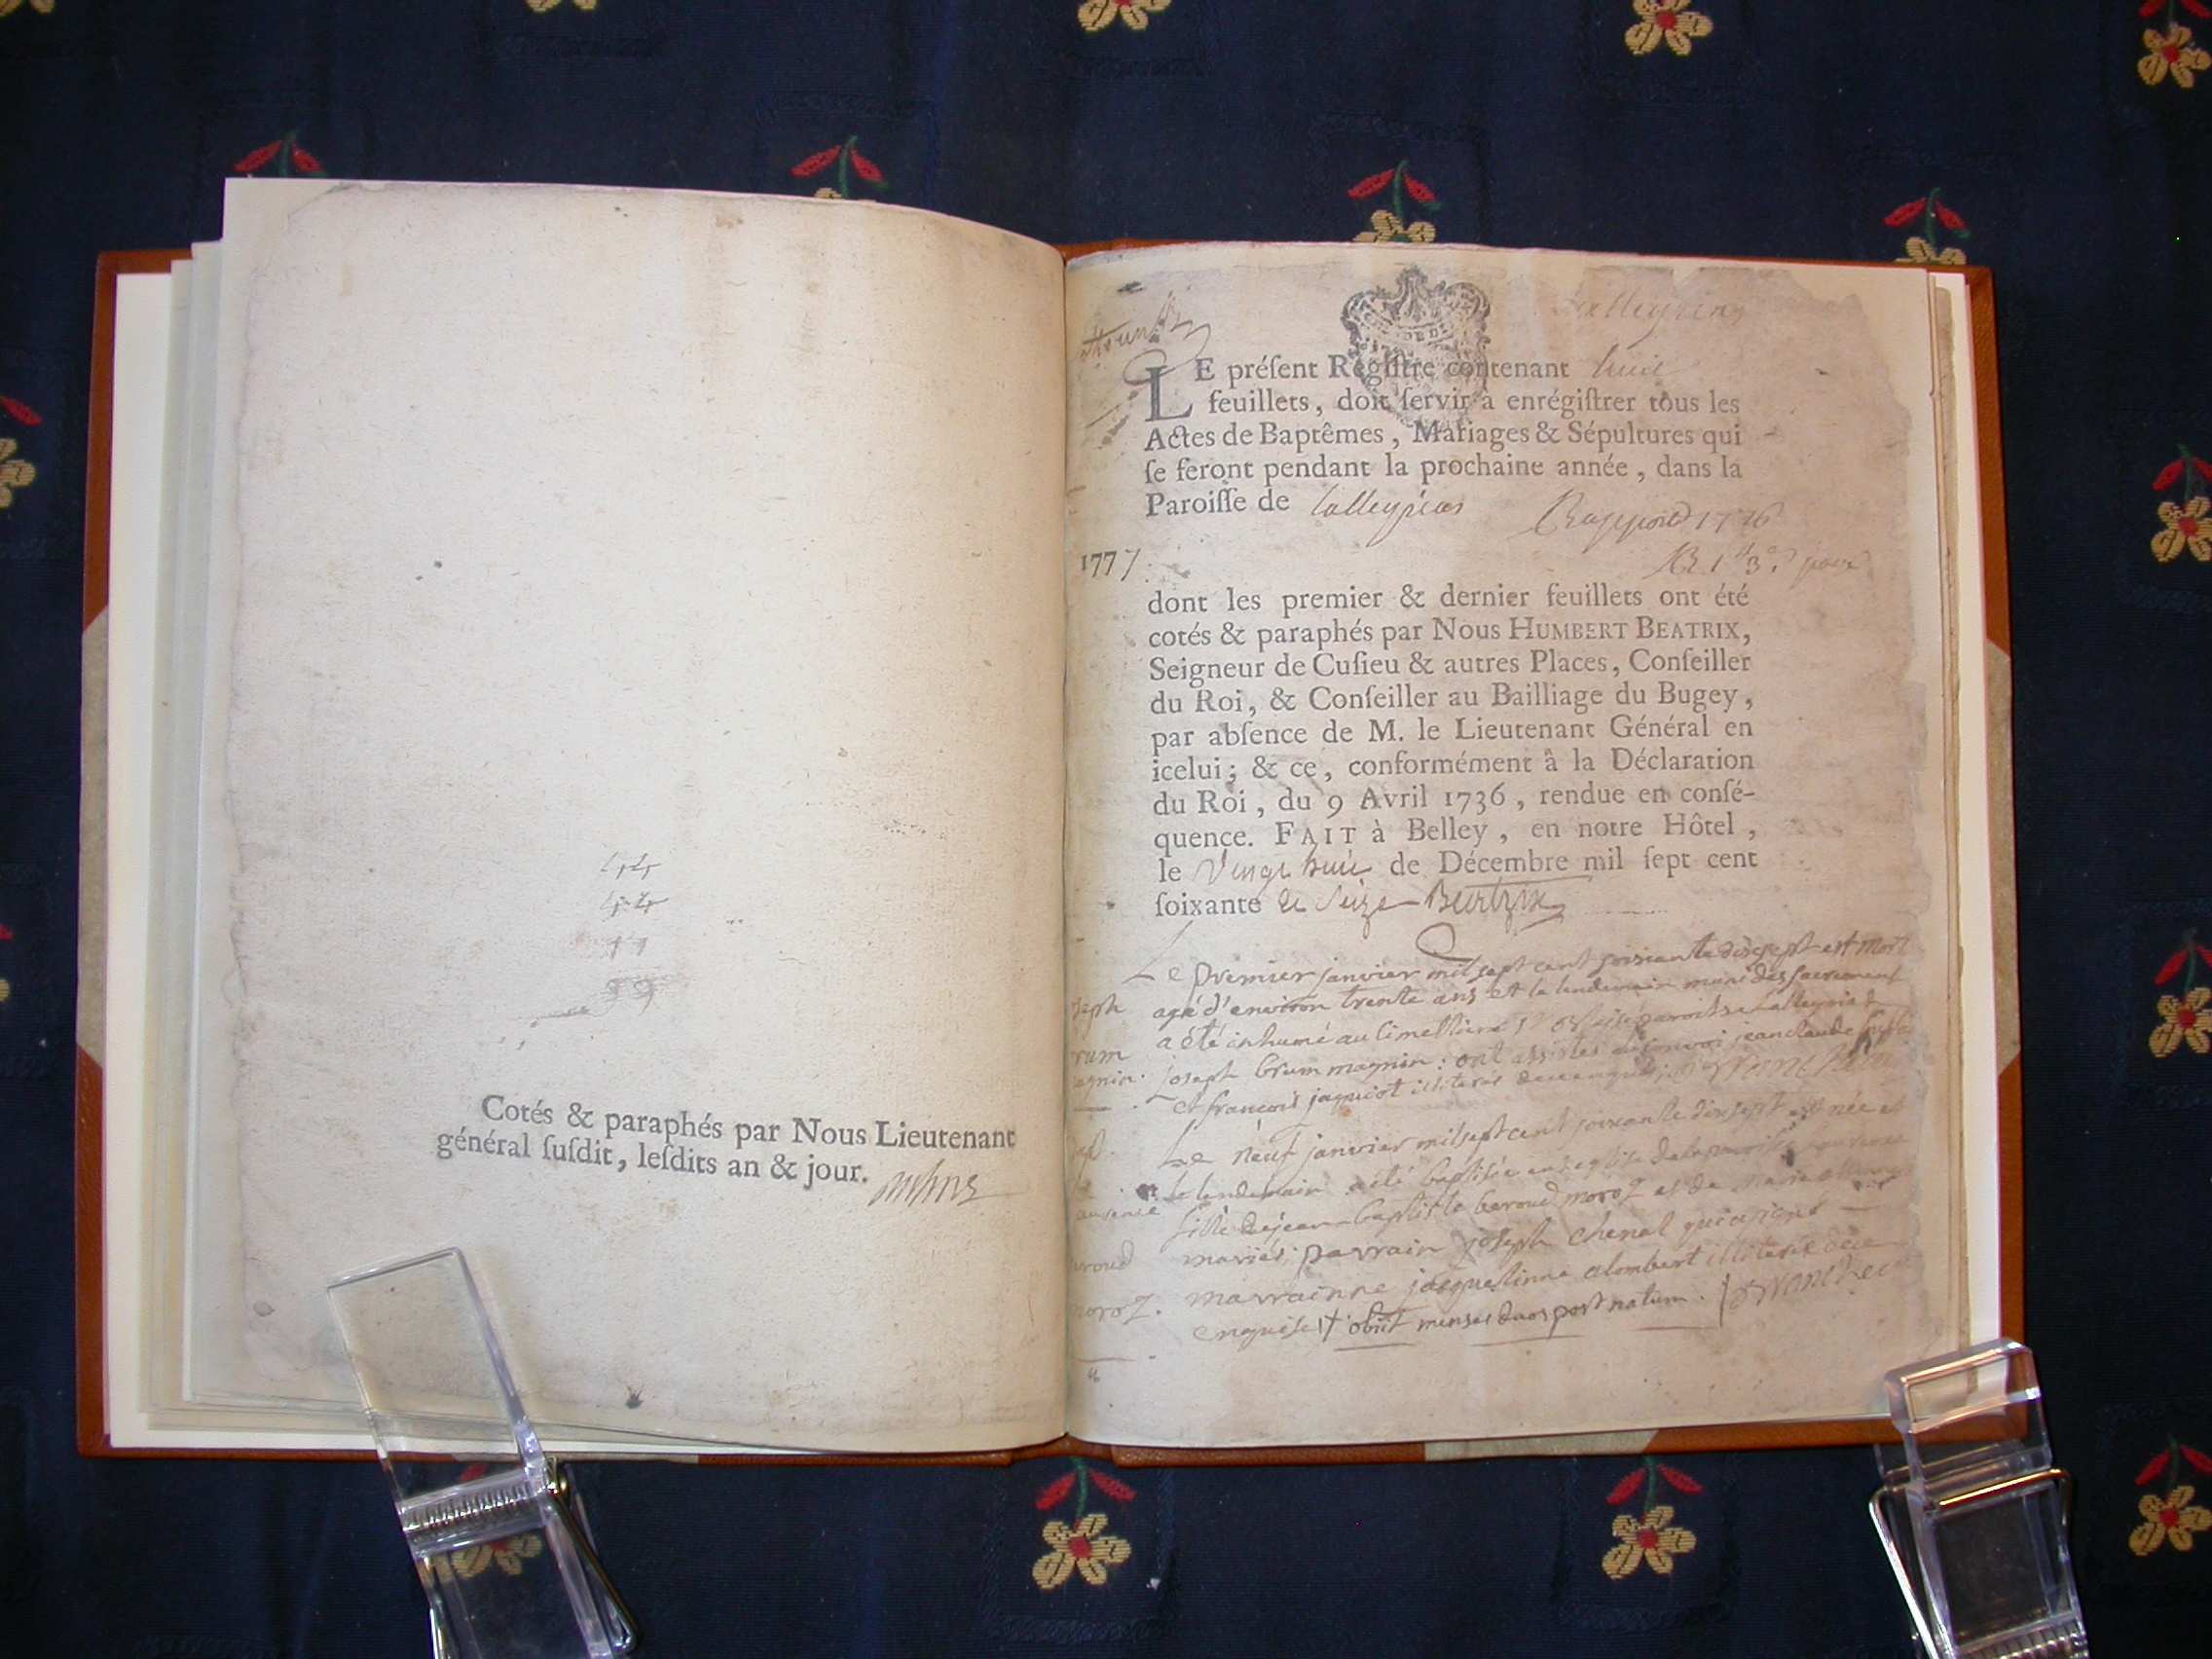 Cotés & paraphés par Nous Lieutenant
général ſuſdit, leſdits an & jour.
LE préſent Régiſtre contenant huit
feuillets, doit ſervir à enrégiſtrer tous les
Actes de Baptêmes, Mariages & Sépultures qui
ſe feront pendant la prochaine année, dans la
Paroiſſe de Lalleyriat
1777
dont les premier & dernier feuillets ont été
cotés & paraphés par Nous HUMBERT BEATRIX,
Seigneur de Cuſieu & autres Places, Conſeiller
du Roi, & Conſeiller au Bailliage du Bugey,
par abſence de M. le Lieutenant Général en
icelui; & ce, conformément â la Déclaration
du Roi, du 9 Avril 1736, rendue en conſé-
quence. FAIT à Belley, en notre Hôtel,
le Vingt huit de Décembre mil ſept cent
ſoixante et Seize Beatrix
Le premier janvier mil sept cent soixante dixsept est mort
agé d'environ trente ans et le lendemain muni des sacrement
a été inhumé au Cimettiere paroisse Lalleyriat
joseph brum magnin: ont assistés au convoi jean claude
et françois jaquiot illiterés
Le neuf janvier mil sept cent soixante dixsept est née et
le lendemain a été baptisée en l'eglise de la paroisse
fille de jean-baptiste beroud moroz et de marie
mariés: parrain joseph chenal qui a signé
marrainne jacquelinne alombert illiterée de ce
enquise // obiit menses duos post natum.